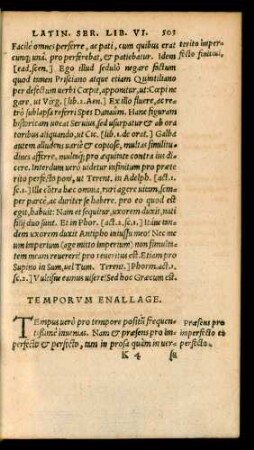 LATIN. SER. LIB. VI. 503
Facilè omnes perferre, ac pati, cum quibus erat
cunq; unà. pro perferebat, & patiebatur. Idem
[ead. scen.] Ego illud sedulò negare factum
quod tamen Prisciano atque etiam Quintiliano
per defectum uerbi Cœpit, apponitur, ut Cœpi ne
gare. ut Virg. [lib. 2. Aen.] Ex illo fluere, ac re
trò sublapsa referri Spes Danaûm. Hanc figuram
historicam uocat Seruius, sed usurpatur & ab ora
toribus aliquando, ut Cic. [lib. 1. de orat.] Galba
autem alludens uariè & copiosè, multas similitu
dines afferre, multaq; pro æquitate contra ius di
cere. Interdum uerò infinitum pro præte
rito perfecto poni, ut Terent. in Adelph. [act. 1.
sc. 1.] Ille contra hæc omnia, ruri agere uitam, sem
per parcè, ac duriter se habere. pro eo quod est
egit, habuit: Nam et sequitur, uxorem duxit, nati
filij duo sunt. Et in Phor. [act. 2. sc. 1.] Itáne tan
dem uxorem duxit Antipho iniussu meo? Nec me
um imperium (age mitto imperium) non simulta
tem meam reuereri? pro reueritus est. Etiam pro
Supino in Sum, uel Tum. Terent. [Phorm. act. 1.
sc. 2.] Vultisne eamus uisere? Sed hoc Græcum est.
terito imper-
fecto finitiui,
TEMPORVM ENALLAGE.
TEmpus uerò pro tempore positũ frequen-
tissimè inuenias. Nam & præsens pro im-
perfecto & perfecto, tum in prosa quàm in uer-
Præsens pro
imperfecto et
perfecto.
K 4 su